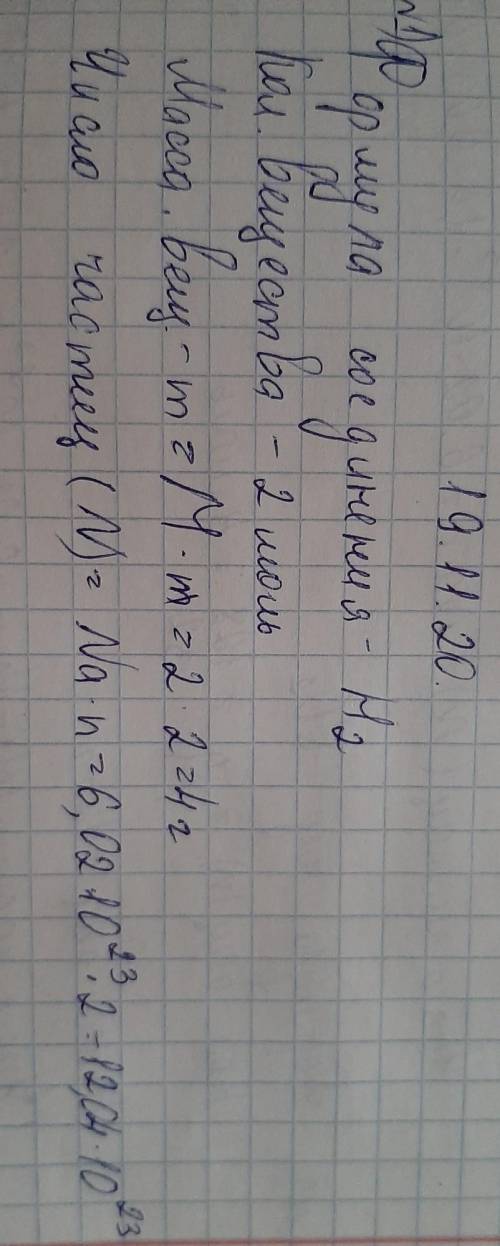 19.11.20.
№1 Формула соединения - H₂
Кол. вещества - 2 моль
Масса. вещ. - m = M · m = 2 · 2 = 4 г
Число частиц (N) = Na · n = 6,02 10²³ · 2 = 12,04 · 10²³